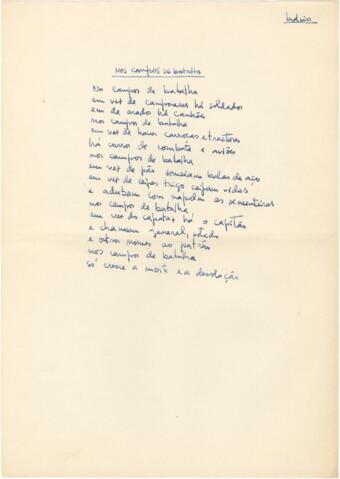 Inédito
NOS CAMPOS DE BATALHA
No campo de batalha
em vez de camponeses há soldados
em de arados há canhões
nos campos de batalha
em vez de carroças e tractores
há carros de combate e aviões
nos campos de batalha
em vez de pão semeiam bolas de aço
em vez de ceifar trigo ceifam vidas
e adubam com napalm as sementeiras
no campo de batalha
em vez do capataz há o capitão
e chamam general,
e outros nomes ao patrão
nos campos de batalha
só cresce a morte e a desolação